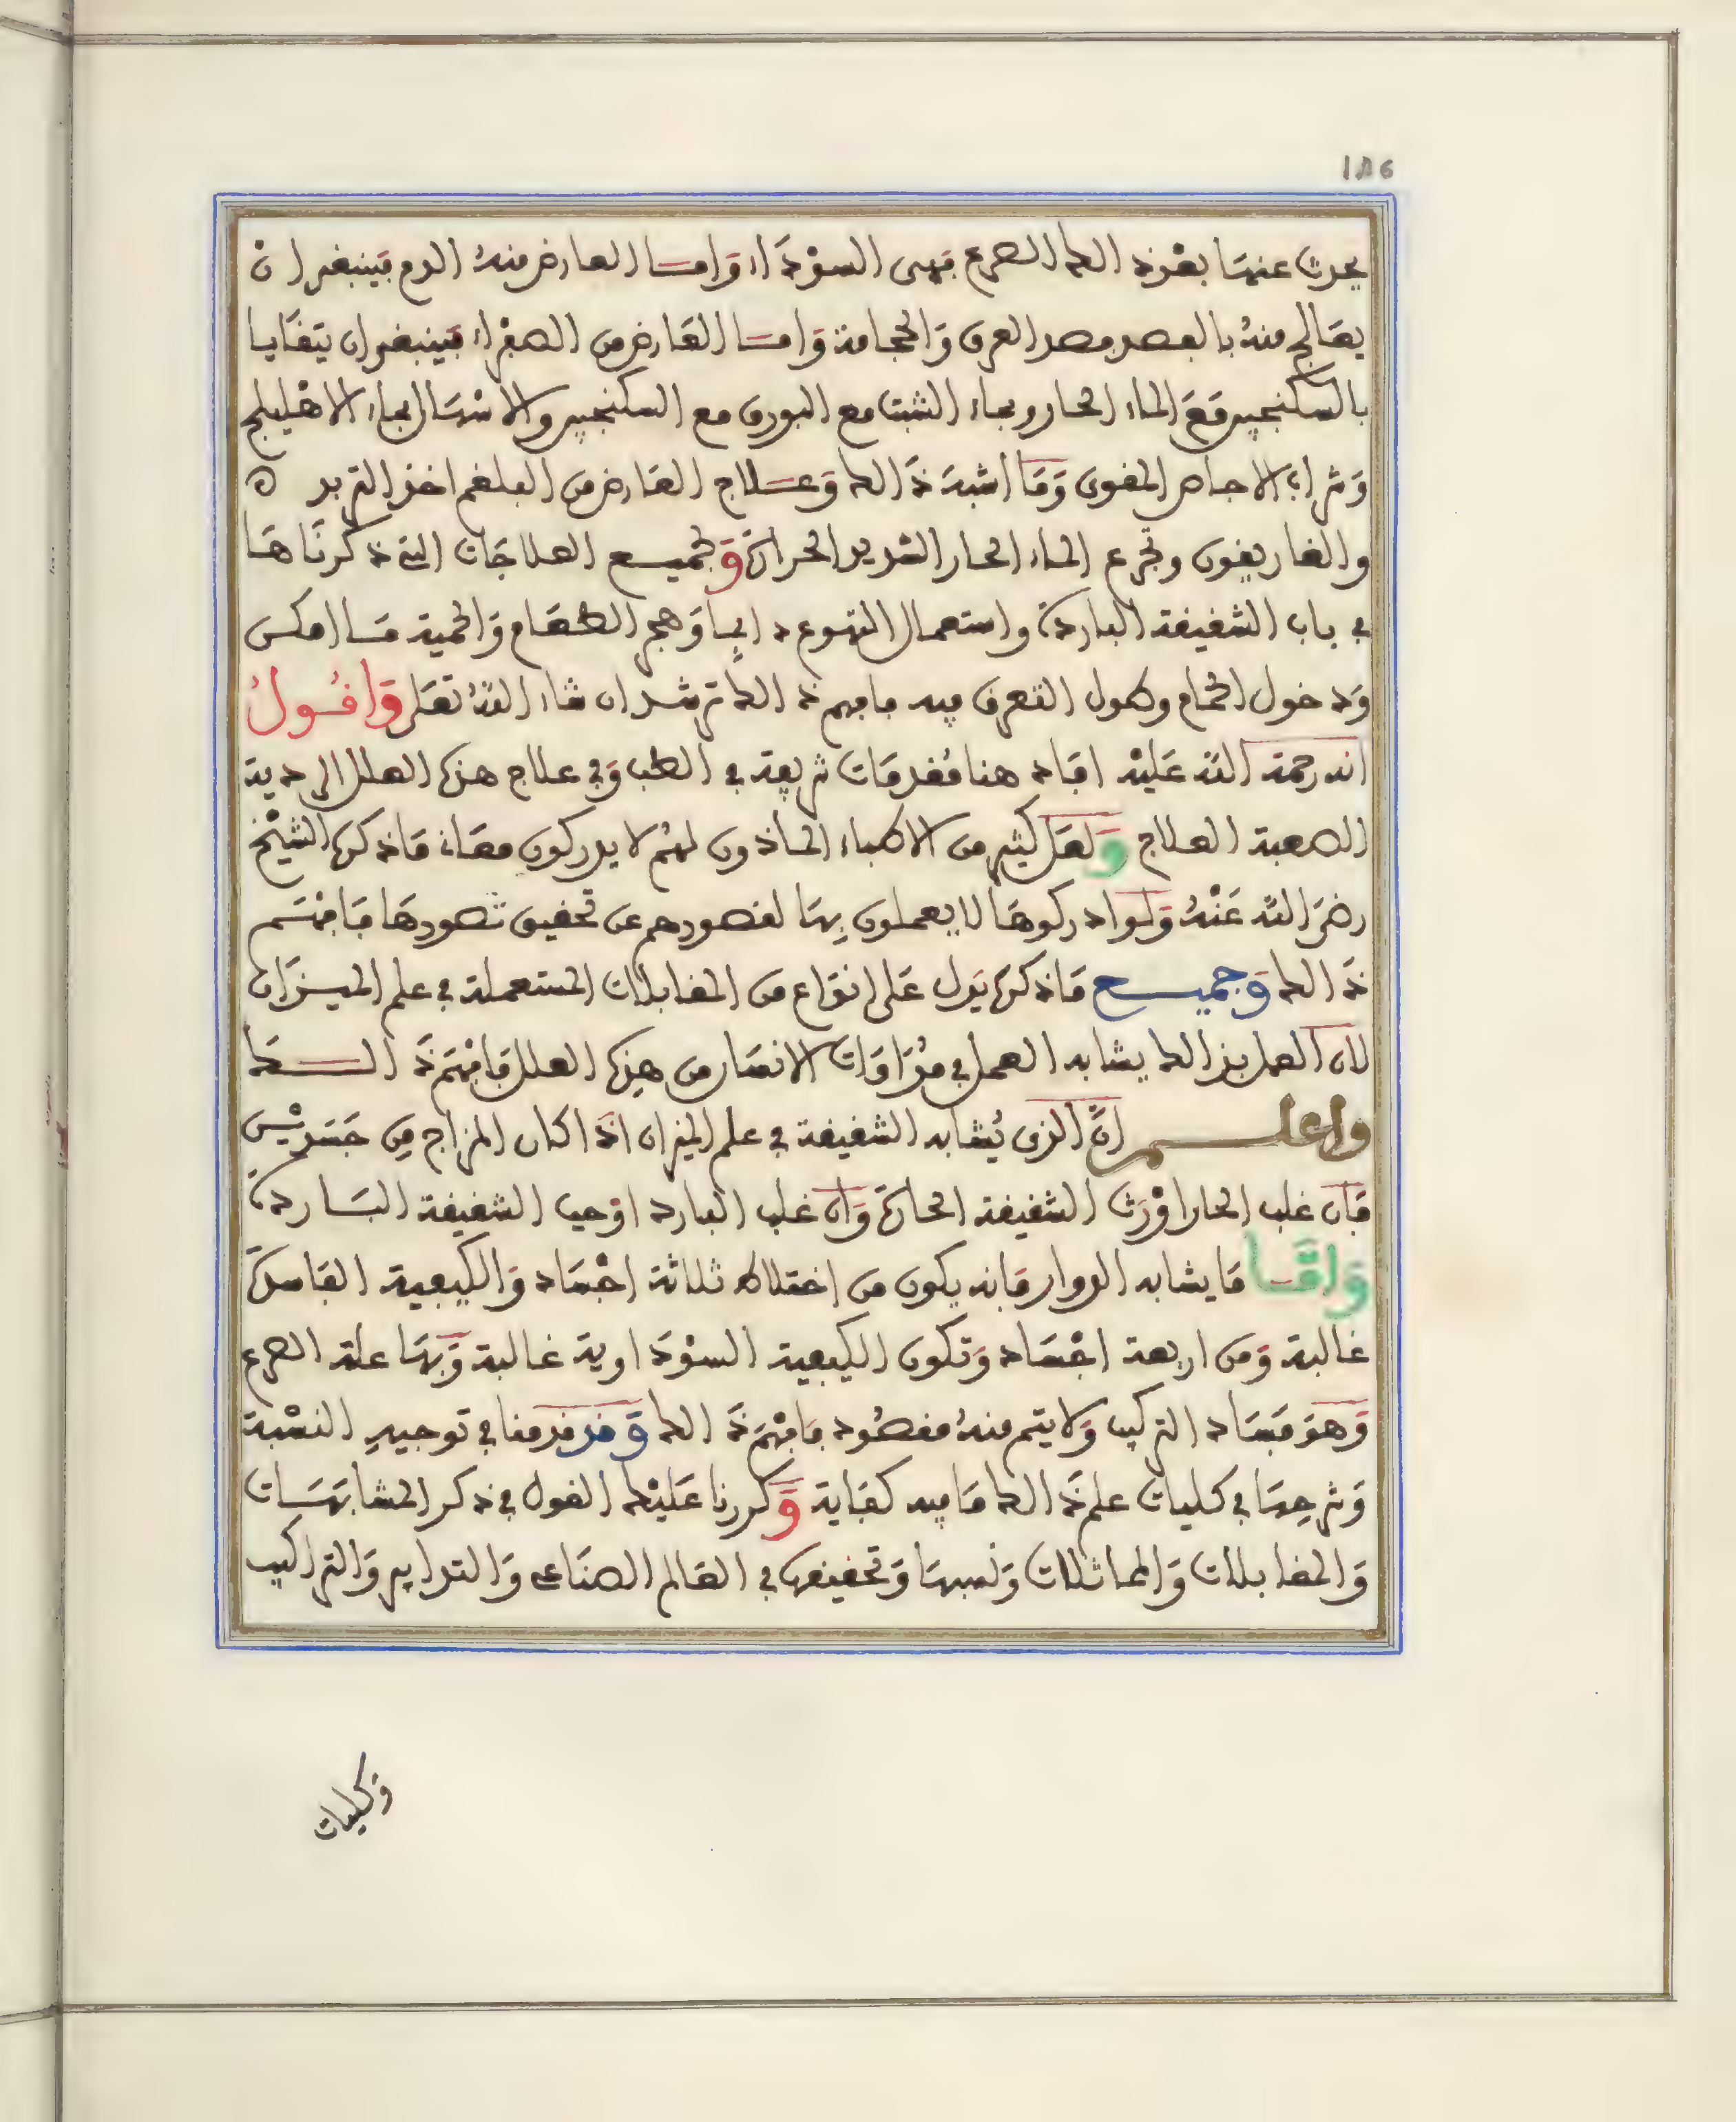 186
يحدث عنها بعد ذلك الصرع فهى السوداء واما العارض منه الدم فينبغى ان
يعالج منه بالفصد فصد العرق والحجامة واما العارض من الصفراء فينبغى ان يتقايا
بالسكنجبين مع الماء الحار وبماء الشبت مع البورق مع السكنجبين والاسهال بماء الاهليلج
وشراب الاجاص المقوى وما اشبه ذالك وعلاج العارض من البلغم اخذ التربد ه
والغاريقون وتجرع الماء الحار الشديد الحرارة وجميع العلاجات التى ذكرناها
فى باب الشقيقة الباردة واستعمال التهوع دايما وهجر الطعام والحمية ما امكن
ودخول الحمام وطول التعرق فيه فافهم ذالك ترشد ان شاء الله تعلى واقول
انه رحمة الله عليه افاد هنا مقدمات شريفة فى الطب وفى علاج هذه العلل الردية
الصعبة العلاج ولعل كثير من الاطباء الحاذقون لهم لا يدركون معانى ما ذكره الشيخ
رضى الله عنه ولو ادركوها لا يعملون بها لقصورهم عن تحقيق تصورها فافهم
ذالك وجميع ما ذكره يدل على انواع من المقابلات المستعملة فى علم الميزان
لان العمل بذالك يشابه العمل فى مداوات الانسان من هذه العلل فافهم ذالك
واعلم ان الذى يشابه الشقيقة فى علم الميزان اذا كان المزاج من جسدين
فان غلب الحار اورث الشقيقة الحارة وان غلب البارد اوجب الشقيقة الباردة
واما ما يشابه الدوار فانه يكون من اختلاط ثلاثة اجساد والكيفية الفاسدة
غالبة ومن اربعة اجساد وتكون الكيفية السوداوية غالبة وبها علة الصرع
وهو فساد التركيب ولا يتم منه مقصود فافهم ذالك وقد قدمنا فى توجيه النسبة
وشرحها فى كليات علم ذالك ما فيه كفاية وكررنا عليك القول فى ذكر المشابهات
والمقابلات والمماثلات ونسبها وتحقيقها فى العالم الصناعى والتدابير والتراكيب
وكليات